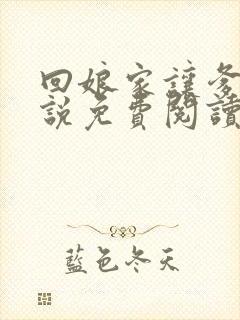 回娘家讓爹
說免費閱讀
藍色冬天